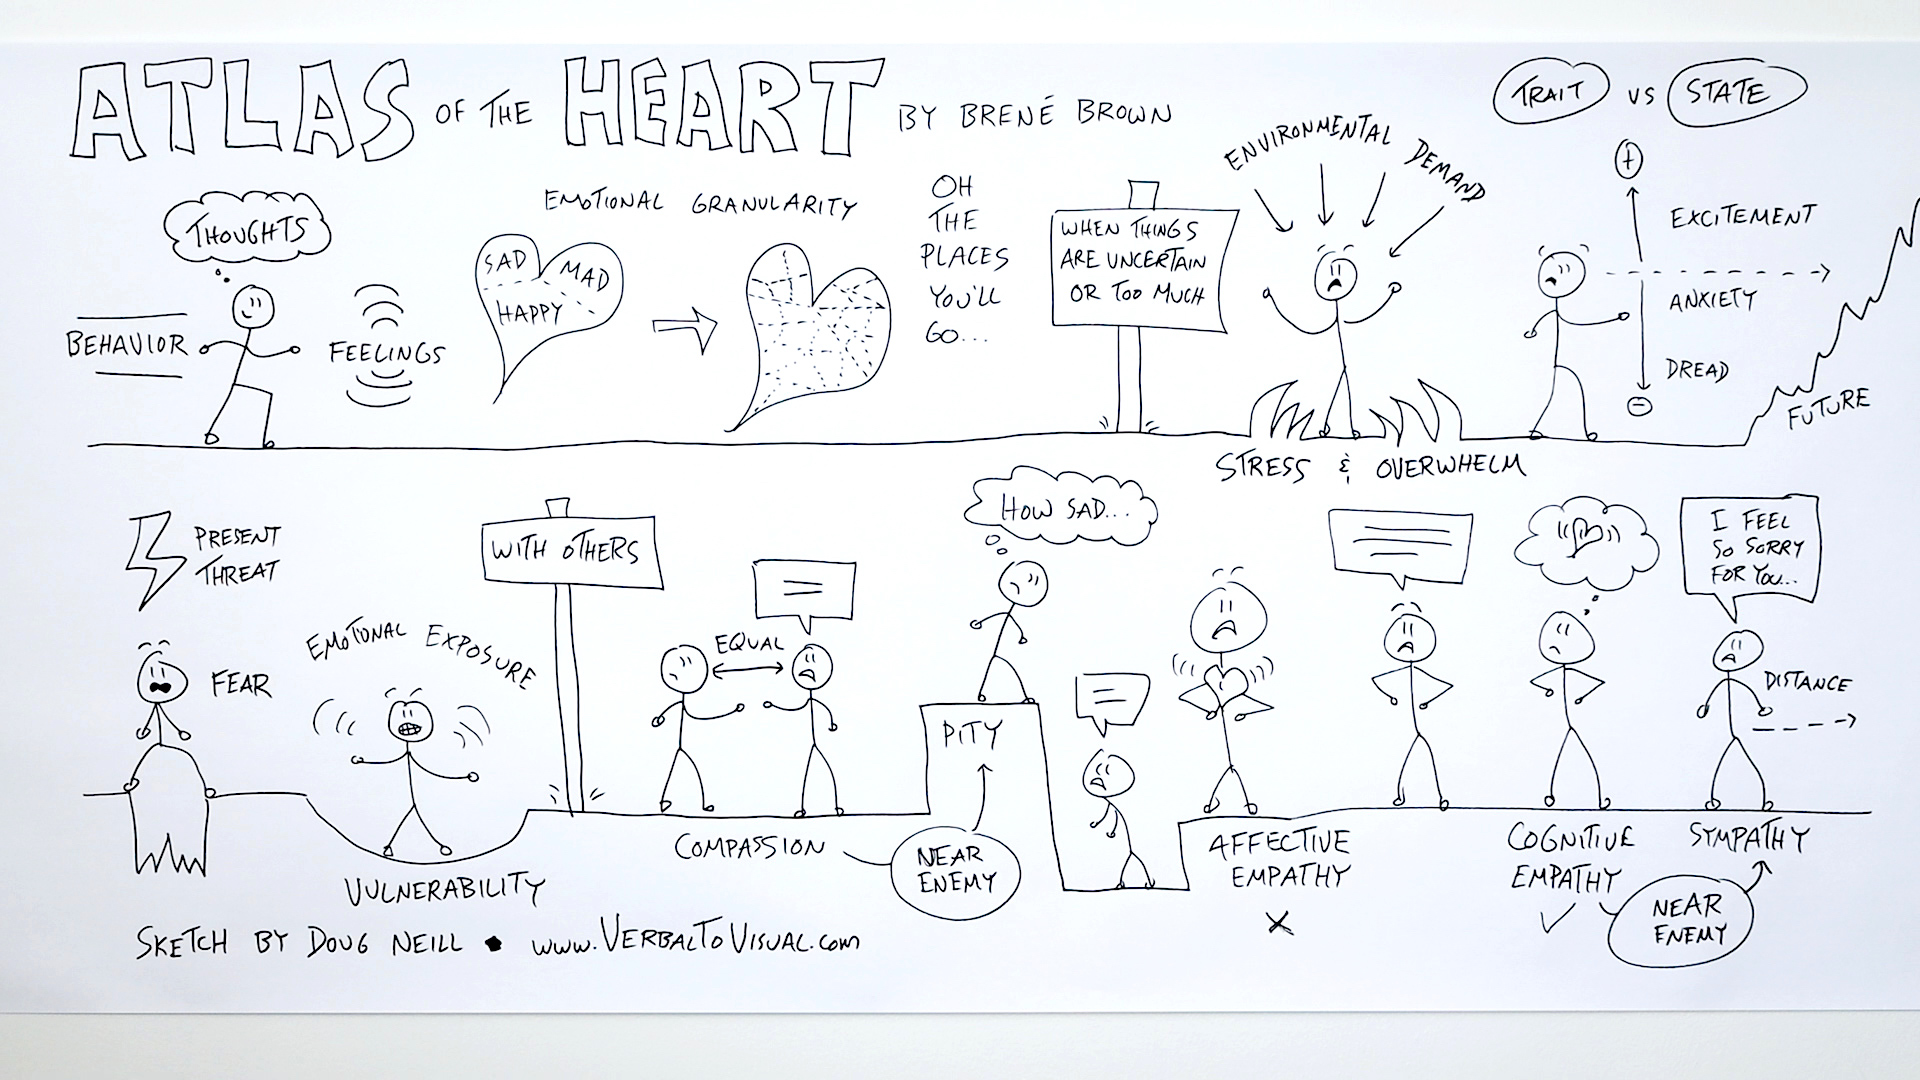 ATLAS OF THE HEART BY BRENÉ BROWN
TRAIT VS STATE
THOUGHTS
BEHAVIOR
FEELINGS
EMOTIONAL GRANULARITY
SAD
MAD
HAPPY
OH
THE
PLACES
YOU'LL
GO...
WHEN THINGS
ARE UNCERTAIN
OR TOO MUCH
ENVIRONMENTAL DEMAND
STRESS & OVERWHELM
+
EXCITEMENT
ANXIETY
DREAD
−
FUTURE
PRESENT
THREAT
FEAR
EMOTIONAL EXPOSURE
VULNERABILITY
WITH OTHERS
EQUAL
COMPASSION
HOW SAD...
PITY
NEAR
ENEMY
AFFECTIVE
EMPATHY
X
COGNITIVE
EMPATHY
✓
I FEEL
SO SORRY
FOR YOU...
DISTANCE
SYMPATHY
NEAR
ENEMY
SKETCH BY DOUG NEILL • www.VERBALTOVISUAL.com